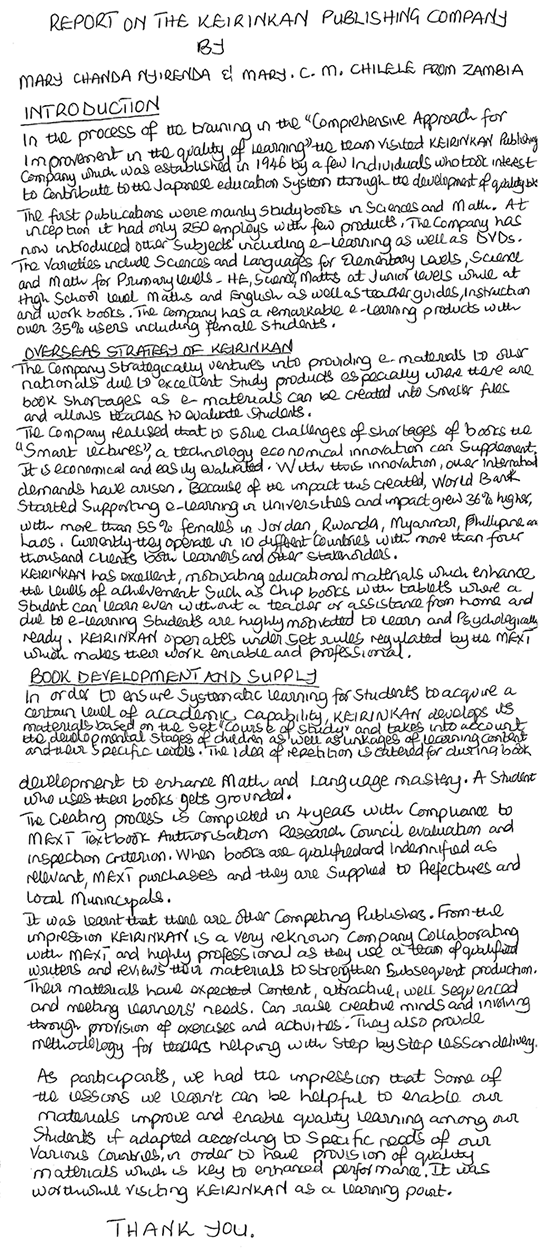 REPORT ON THE KEIRINKAN PUBLISHING COMPANY
BY
MARY CHANDA NYIRENDA & MARY. C. M. CHILELE FROM ZAMBIA
INTRODUCTION
In the process of the training in the "Comprehensive Approach for
Improvement in the quality of learning" the team visited KEIRINKAN Publishing
Company which was established in 1946 by a few Individuals who took interest
to contribute to the Japanese education System through the development of quality
The first publications were mainly study books in Sciences and Math. At
inception it had only 250 employs with few products. The Company has
now introduced other subjects including e-learning as well as DVDs.
The varieties include Sciences and Languages for Elementary Levels, Science
and Math for Primary levels - HE, Science, Maths at Junior levels while at
High School level Maths and English as well as teacher guides, Instruction
and work books. The Company has a remarkable e-learning products with
over 35% users including female students.
OVERSEAS STRATEGY OF KEIRINKAN
The Company Strategically ventures into providing e-materials to other
nationals due to excellent study products especially where there are
book shortages as e-materials can be created into smaller files
and allows teachers to evaluate students.
The Company realised that to solve challenges of shortages of books the
"Smart lectures", a technology economical innovation can supplement.
It is economical and easily evaluated. With this innovation, over international
demands have arisen. Because of the impact this created, World Bank
Started supporting e-learning in Universities and impact grew 36% higher,
with more than 55% females in Jordan, Rwanda, Myanmar, Phillipine and
Laos. Currently they operate in 10 diffent Countries with more than four
thousand clients both learners and other stakeholders.
KEIRINKAN has excellent, motivating educational materials which enhance
the levels of achievement such as Chip books with tablets where a
Student can learn even without a teacher or assistance from home and
due to e-learning Students are highly motivated to learn and Psychologically
ready. KEIRINKAN operates under set rules regulated by the MEXT
which makes their work enviable and professional.
BOOK DEVELOPMENT AND SUPPLY
In order to ensure Systematic learning for students to acquire a
certain level of academic capability, KEIRINKAN develops its
materials based on the set "Course of Study" and takes into account
the developmental stages of children as well as linkages of learning content
and their specific levels. The idea of repetition is catered for during book
development to enhance Math and Language mastery. A student
who uses their books gets grounded.
The creating process is completed in 4 years with Compliance to
MEXT Textbook Authorisation Research Council evaluation and
inspection criterion. When books are qualified and Indennified as
relevant, MEXT purchases and they are supplied to Prefectures and
Local Municipals.
It was learnt that there are other Competing Publishers. From the
impression KEIRINKAN is a very reknown Company Collaborating
with MEXT and highly professional as they use a team of qualified
writers and reviews their materials to strengthen subsequent production.
Their materials have expected Content, attractive, well sequenced
and meeting learners' needs. Can raise creative minds and involving
through provision of exercises and activities. They also provide
methodology for teachers helping with step by step lesson delivery.
As participants, we had the impression that some of
the lessons we learn't can be helpful to enable our
materials improve and enable quality learning among our
Students if adapted according to specific needs of our
various Countries, in order to have provision of quality
materials which is key to enhanced performance. It was
worthwhile visiting KEIRINKAN as a learning point.
THANK YOU.